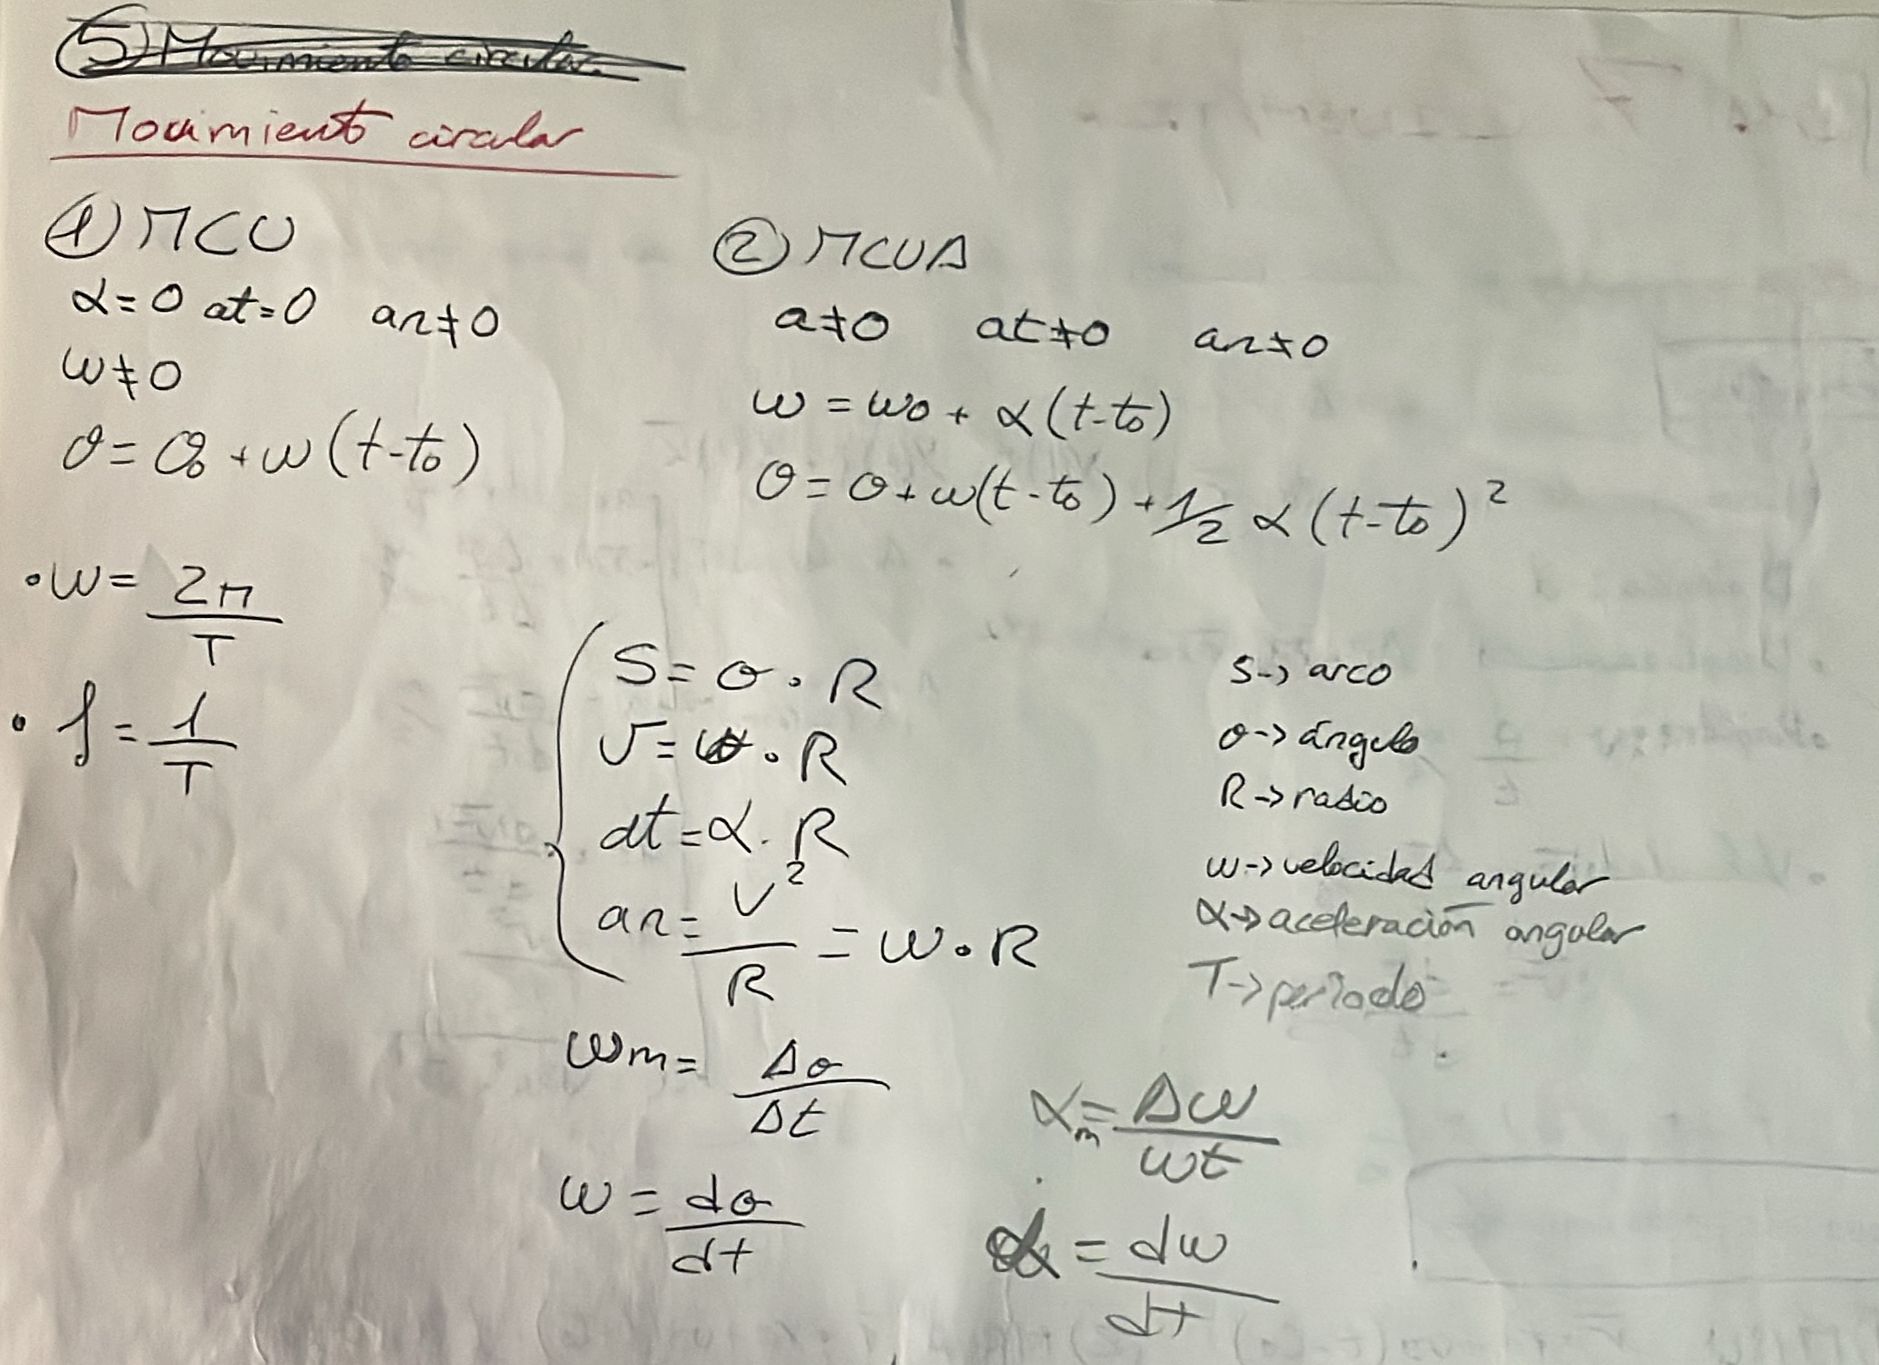 5) Movimiento circular.
Movimiento circular
① MCU
α=0 at=0 an≠0
ω≠0
θ=θ₀+ω(t-t₀)
•ω=2π/T
•f=1/T
② MCUA
a≠0 at≠0 an≠0
ω=ω₀+α(t-t₀)
θ=θ+ω(t-t₀)+1/2 α(t-t₀)²
S=θ·R
v=ω·R
at=α·R
an=v²/R=ω·R
ωm=Δθ/Δt
ω=dθ/dt
S→arco
θ→ángulo
R→radio
ω→velocidad angular
α→aceleración angular
T→periodo
αm=Δω/ωt
α=dω/dt